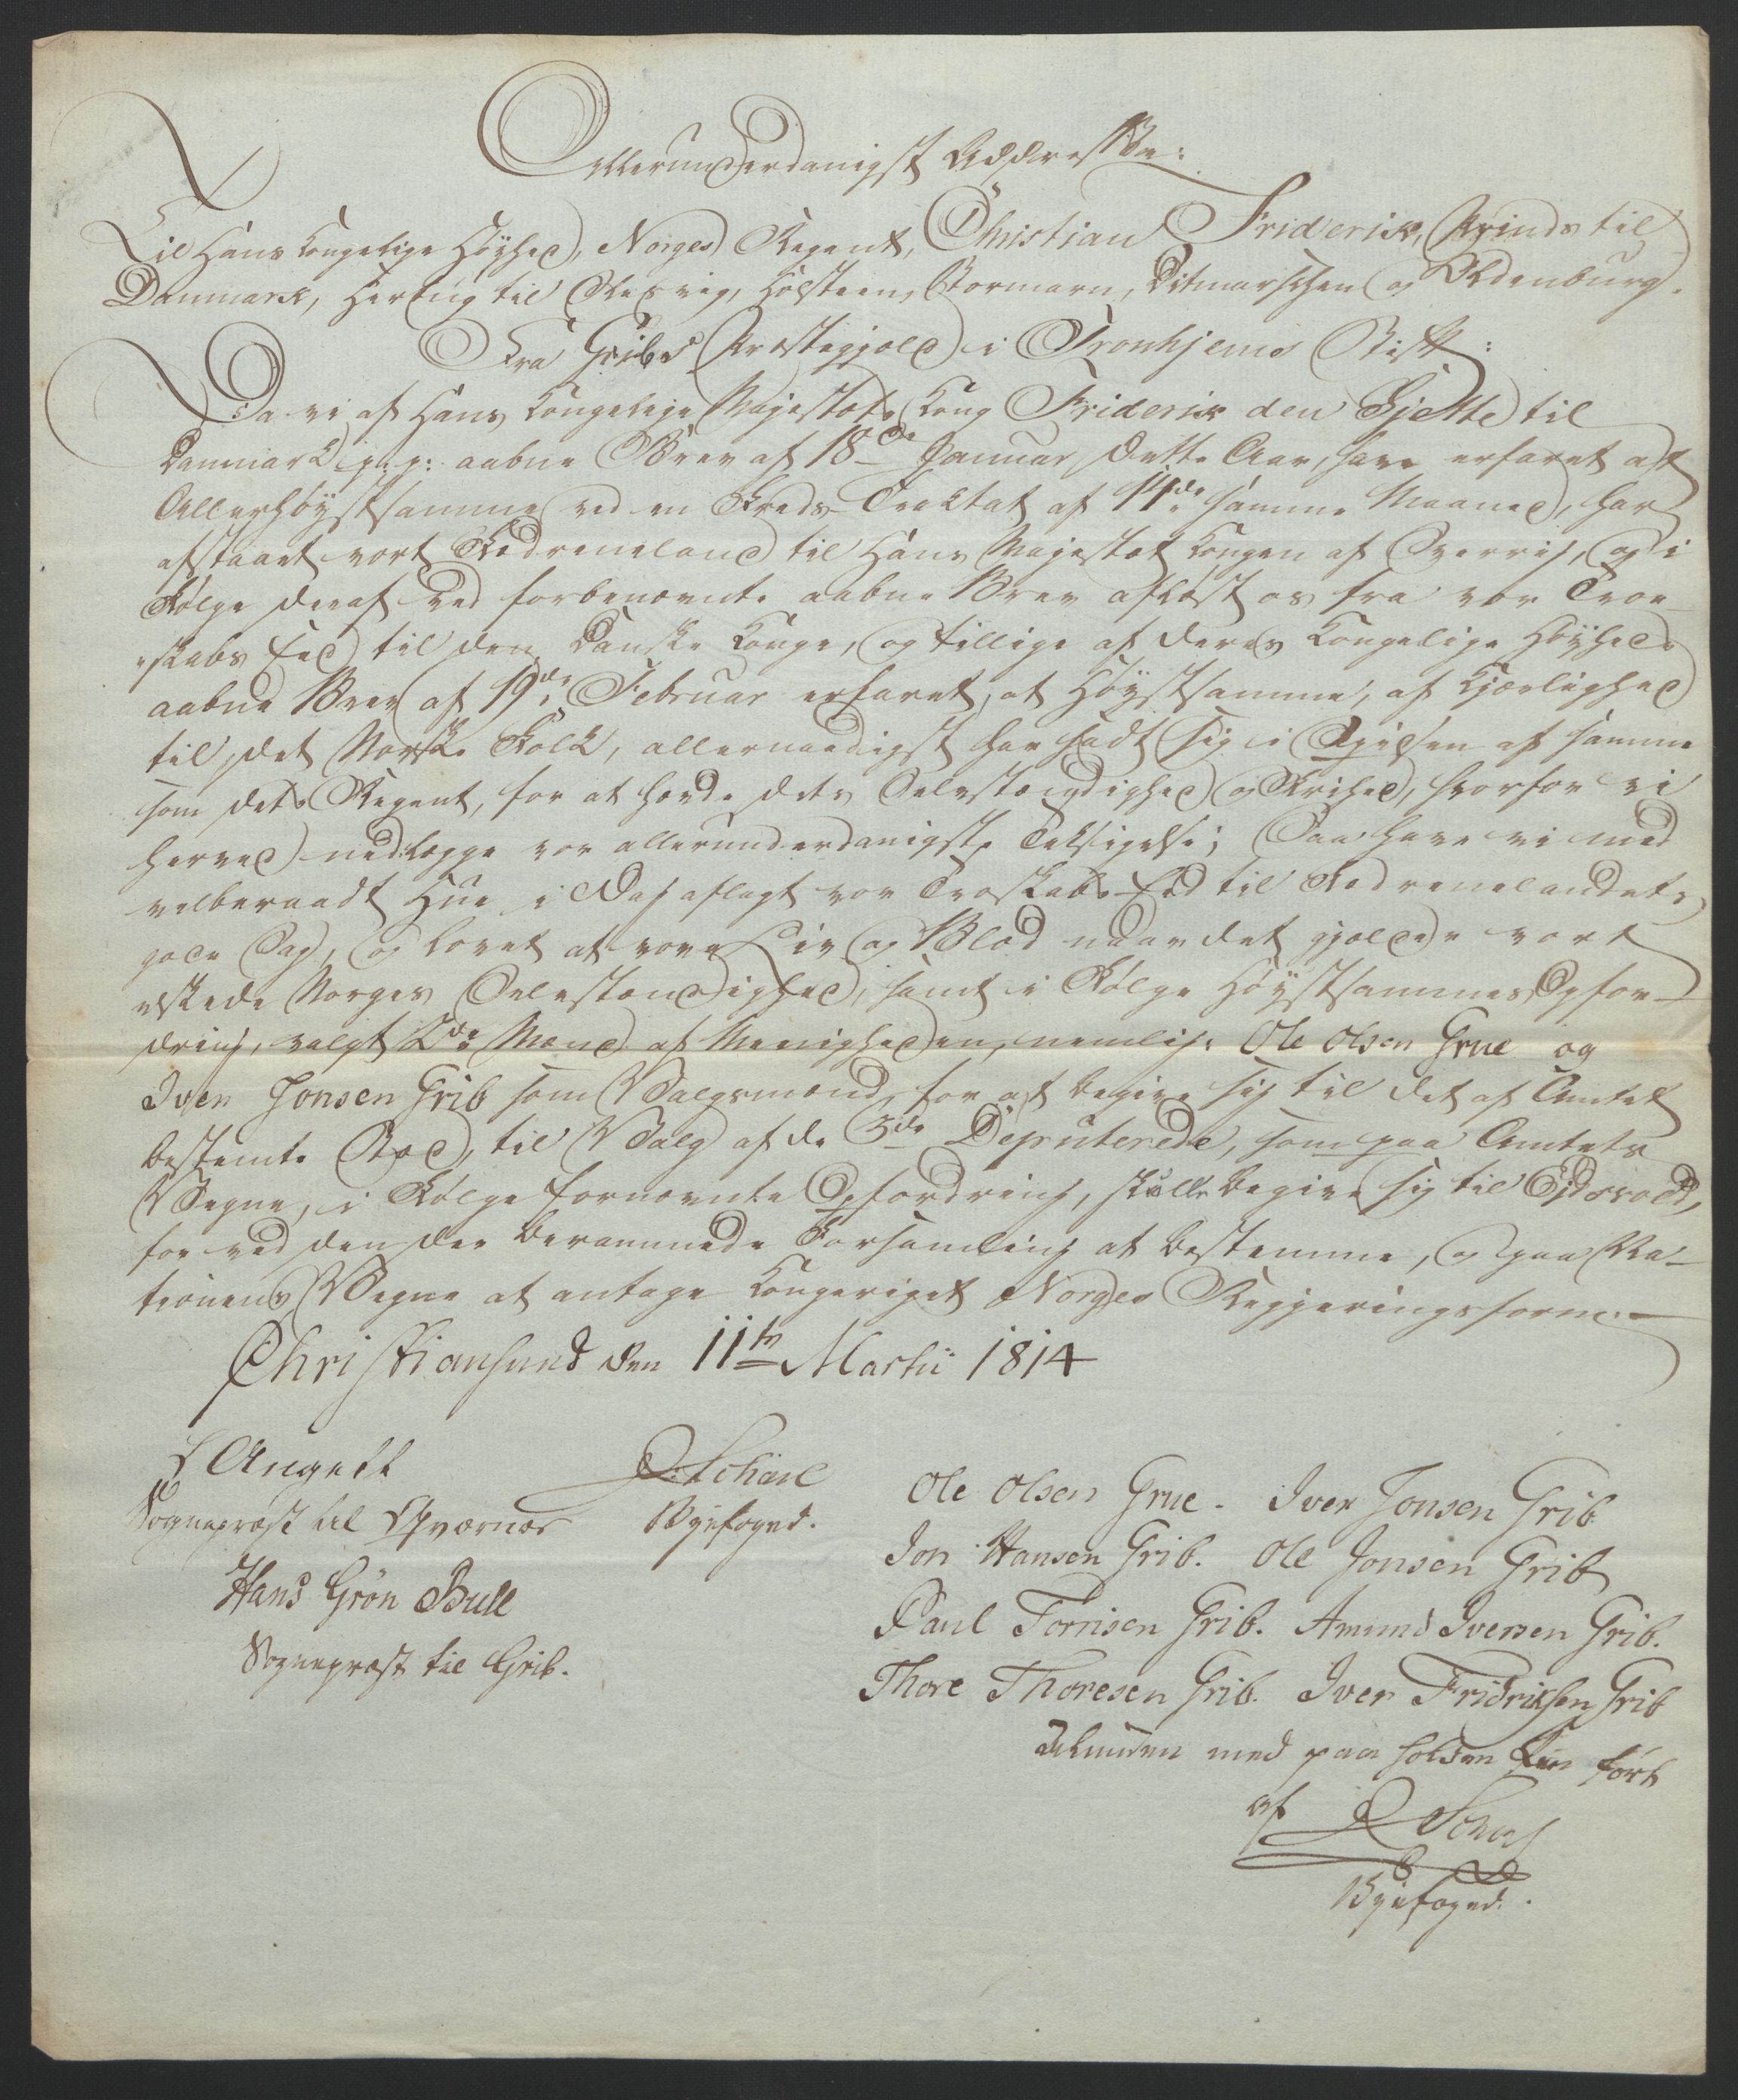 Allerunderdanigst Addresse:
Til Hans Kongelige Høyhed, Norges Regent, Christian Friderik, Prinds til
Danmark, Hertug til Slesvig, Holsteen, Stormarn, Ditmarschen og Oldenburg.
Fra Gribs Præstegjæld i Tronhjems Stift:
Da vi af Hans Kongelige Majestæts Kong Friderik den Sjette til
Danmark p: p: aabne Brev af 18de Januar dette Aar, have erfaret at
Allerhøystsamme ved en Freds-Traktat af 14de samme Maaned, har
afstaaet vort Fødreneland til Hans Majestæt Kongen af Sverrig, og i
Følge deraf ved forbenævnte aabne Brev afløst os fra vor Troe-
skabs Eed til den Danske Konge, og tillige af Deres Kongelige Høyheds
aabne Brev af 19de Februar erfaret, at Høystsamme, af Kjærlighed
til det Norske Folk, allernaadigst har sadt sig i Spidsen af samme
som dets Regent, for at hævde dets Selvstændighed og Frihed, hvorfor vi
herved nedlægge vor allerunderdanigste Taksigelse; Saa have vi med
velberaadt Hue i Dag aflagt vor Troskabs-Eed til Fædrenelandets
gode Sag, og lovet at vove Liv og Blod naar det gjælder vort
elskede Norges Selvstændighed, samt i Følge Høystsammes Opfor-
dring, valgt 2de Mænd af Menigheden, nemlig: Ole Olsen Grue og
Iver Jonsen Grib som Valgsmænd, for at begive sig til det af Amtet
bestemte Stæd, til Valg af de 3de Deputerede, som paa Amtets
Vegne, i Følge fornævnte Opfordring, skulle begive sig til Ejdsvold,
for ved den der berammede Forsamling at bestemme, og paa Na-
tionens Vegne at antage Kongeriget Norges Regjeringsform.
Christiansund den 11te Martii 1814
L Angell
Sogneprest til Qværnæs
Byefoged.
Hans Grøn Bull
Sogneprest til Grib.
Ole Olsen Grue. Iver Jonsen Grib
Jon Hansen Grib. Ole Jonsen Grib
Paul Torrisen Grib. Amund Iversen Grib.
Thore Thoresen Grib. Iver Fridriksen Grib
med paaholden Pen ført
af
Byefoged.